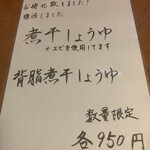 お待た致しました!
煮干しょうゆ
※エビを使用してます
背脂煮干しょうゆ
数量限定
各950円